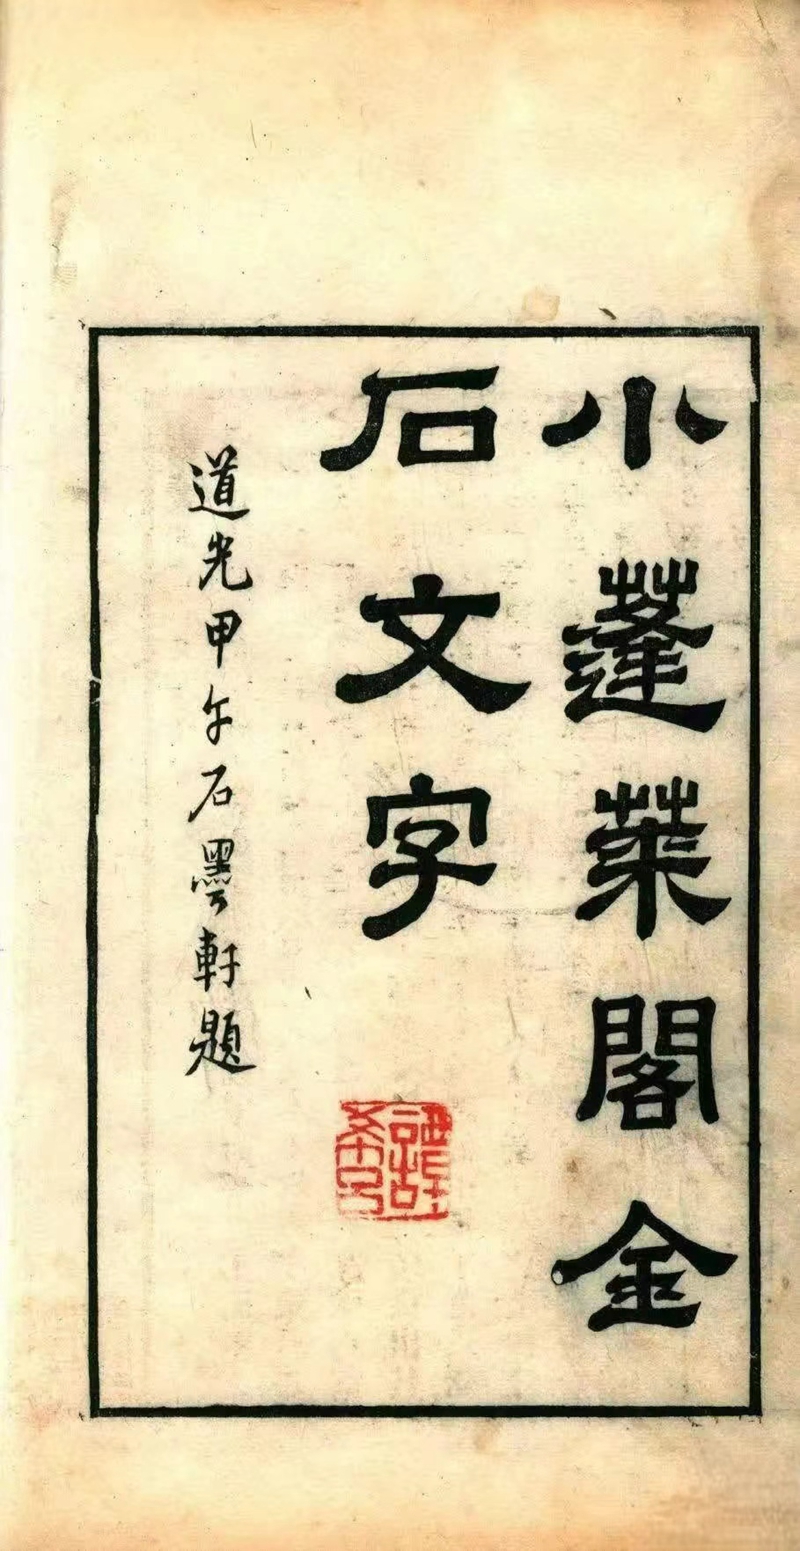 小蓬萊閣金
石文字
道光甲午石墨軒題